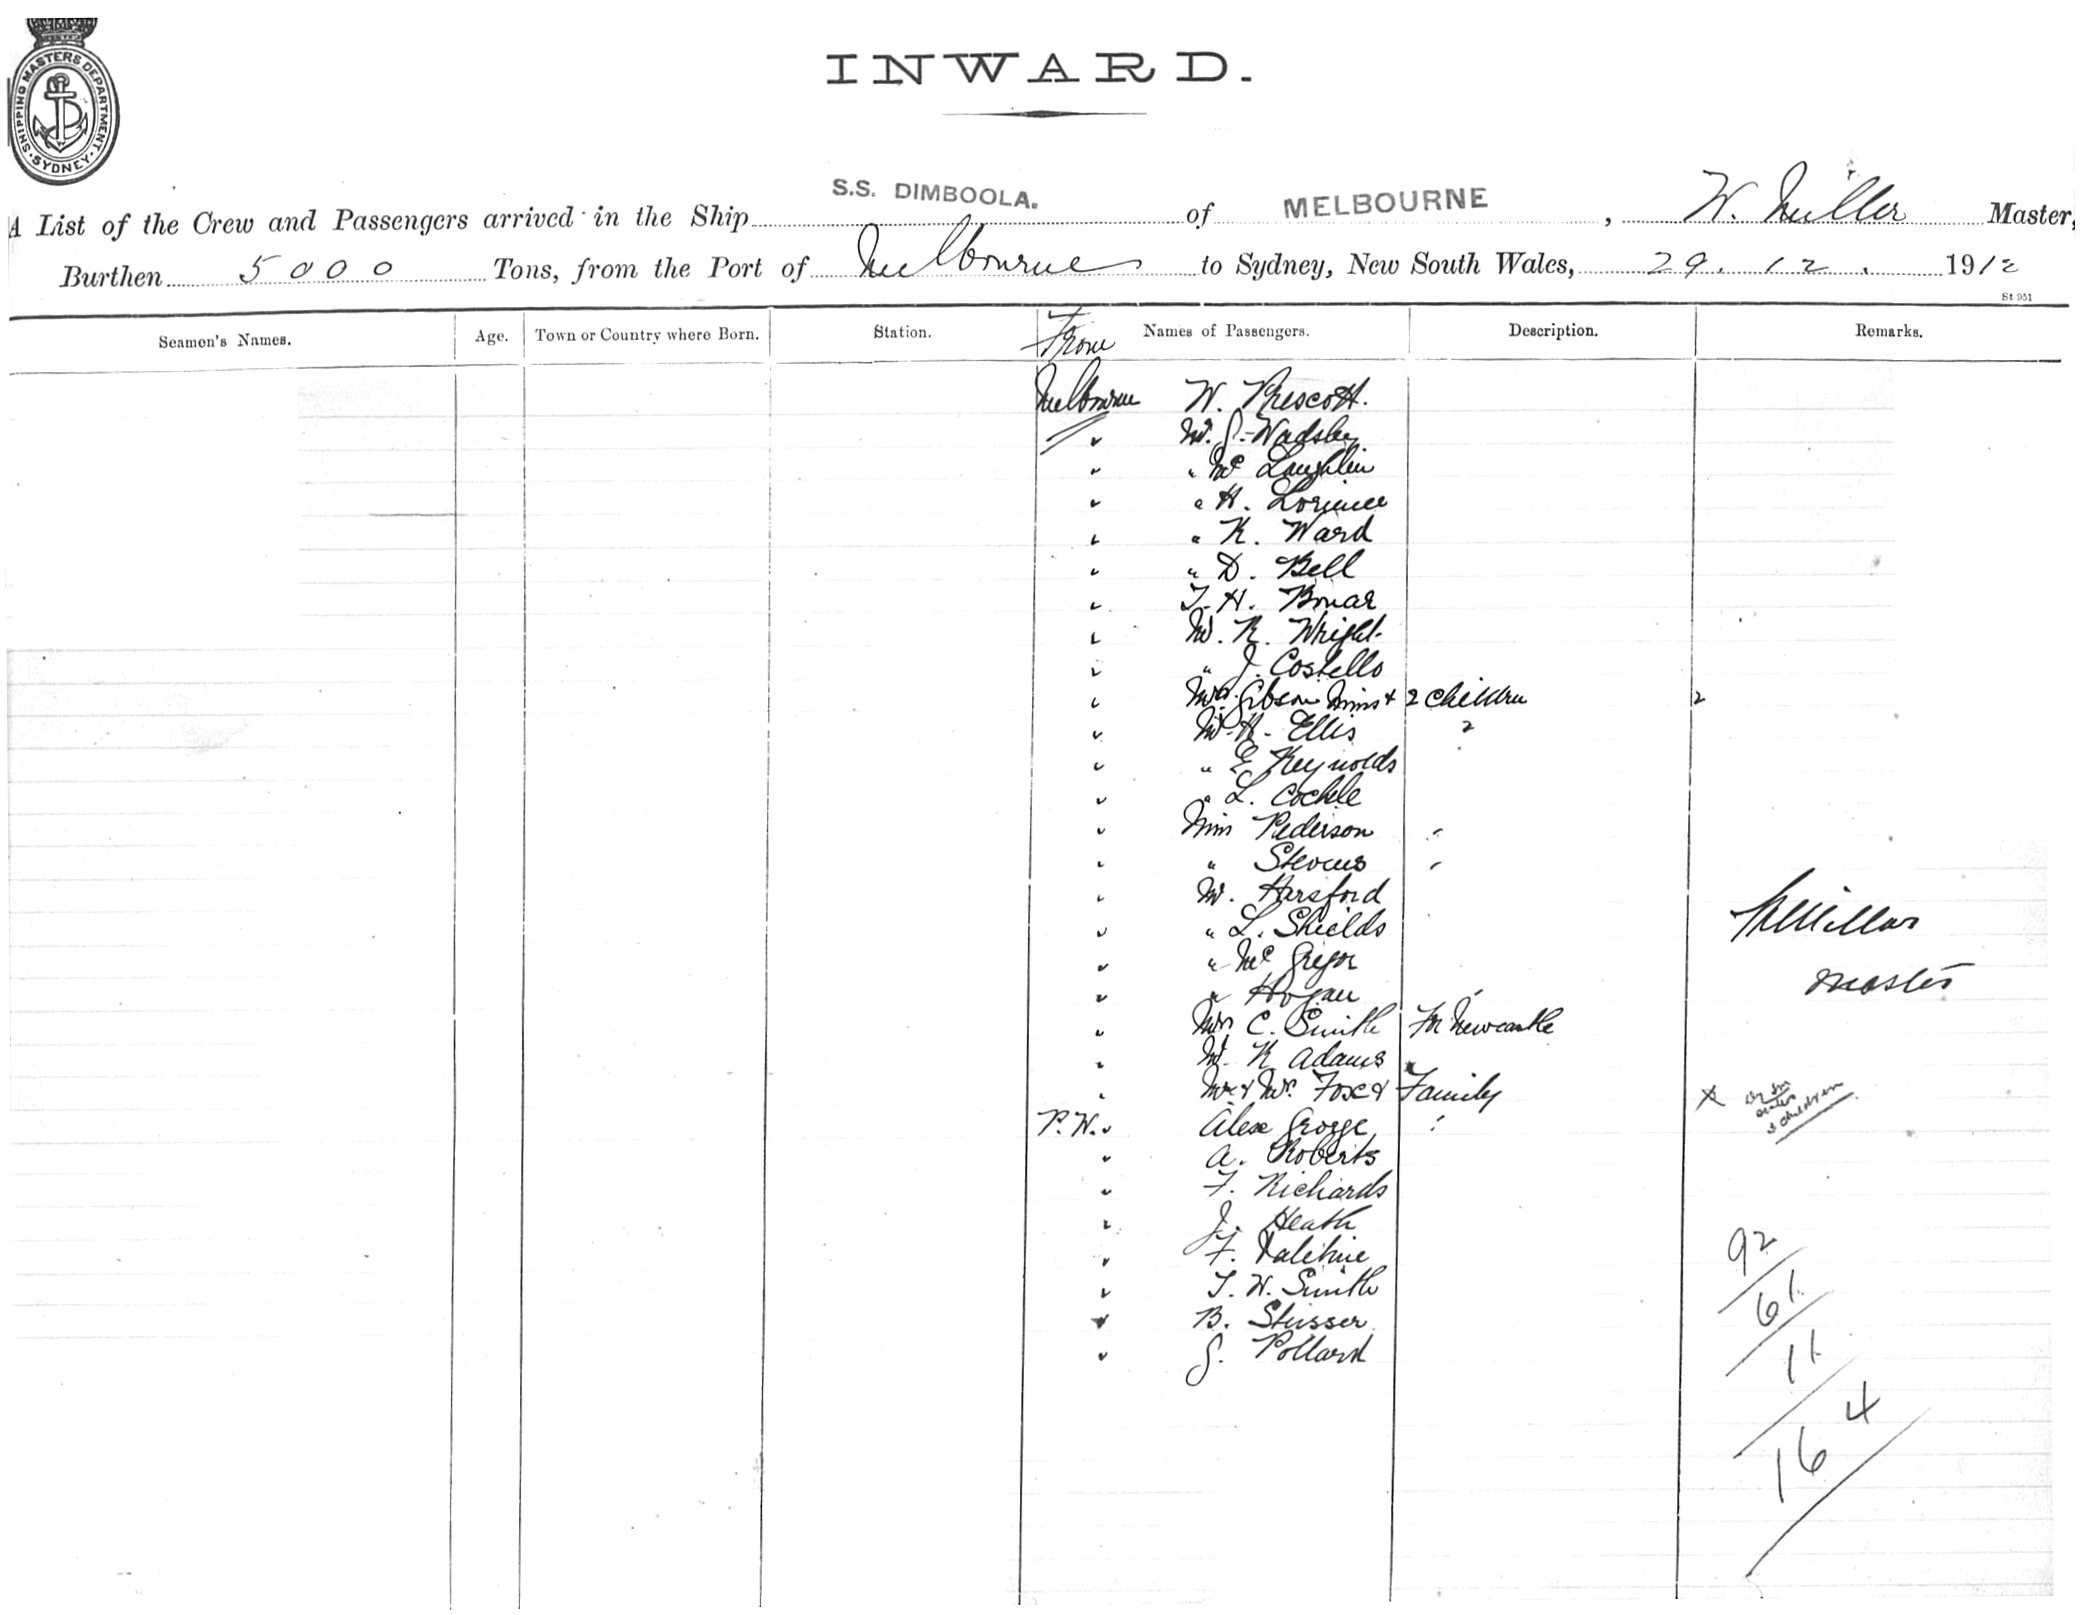 SHIPPING MASTERS DEPARTMENT. SYDNEY
INWARD.
A List of the Crew and Passengers arrived in the Ship S.S. DIMBOOLA. of MELBOURNE, W. Miller Master,
Burthen 5000 Tons, from the Port of Melbourne to Sydney, New South Wales, 29. 12. 1912
St 951
Seamen's Names. Age. Town or Country where Born. Station. From Names of Passengers. Description. Remarks.
Melbourne W. Prescott.
" Mr. G. Wadsley
" " Mc Laughlin
" " H. Lorimer
" " R. Ward
" " D. Bell
" T. H. Bonar
" Mr. R. Wright
" " J. Costello
" Mrs. Gibson Mims & 2 children 2
" Mr. H. Ellis "
" " E Reynolds
" " L. Cockle
" Miss Pederson "
" " Stevens "
" Mr. Harsford
" " L. Shields
" " Mc Gregor
" " Hogan
" Mrs C. Smith For Newcastle
" Mr. R Adams
" Mr & Mrs. Fox & Family x
3 children
P.W. " Alex Grosse
" A. Roberts
" F. Richards
" J. Heath
" F. Valentine
" T. W. Smith
" B. Stusser
" G. Pollard
W Millar
Master
92
61
11
164